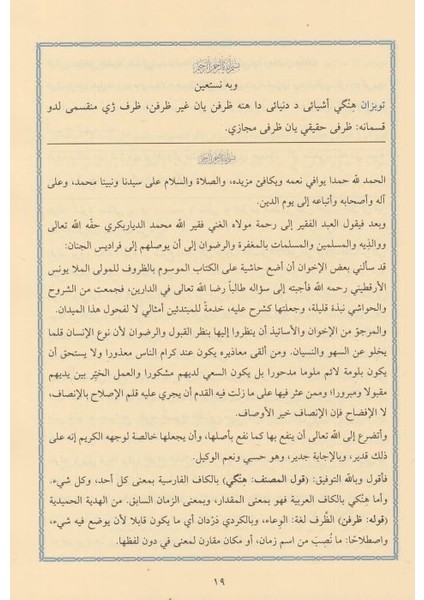 بسم الله الرحمن الرحيم
وبه نستعين
توبزان هنگي أشيائى د دنيائى دا هنه ظرفن يان غير ظرفن، ظرف ژي منقسمى لدو
قسمانه: ظرفى حقيقي يان ظرفى مجازي.
بسم الله الرحمن الرحيم
الحمد لله حمدا يوافي نعمه ويكافئ مزيده، والصلاة والسلام على سيدنا ونبينا محمد، وعلى
آله وأصحابه وأتباعه إلى يوم الدين.
وبعد فيقول العبد الفقير إلى رحمة مولاه الغني فقير الله محمد الدياربكري حفّه الله تعالى
ووالديه والمسلمين والمسلمات بالمغفرة والرضوان إلى أن يوصلهم إلى فراديس الجنان:
قد سألني بعض الإخوان أن أضع حاشية على الكتاب الموسوم بالظروف للمولى الملا يونس
الأرقطيني رحمه الله فأجبته إلى سؤاله طالباً رضا الله تعالى في الدارين، فجمعت من الشروح
والحواشي نبذة قليلة، وجعلتها كشرح عليه، خدمةً للمبتدئين أمثالي لا لفحول هذا الميدان.
والمرجوّ من الإخوان والأساتيذ أن ينظروا إليها بنظر القبول والرضوان لأن نوع الإنسان قلما
يخلو عن السهو والنسيان. ومن ألقى معاذيره يكون عند كرام الناس معذورا ولا يستحق أن
يكون بلومة لائم ملوما مدحورا بل يكون السعي لديهم مشكورا والعمل الخيّر بين يديهم
مقبولا ومبرورا؛ وممن عثر فيها على ما زلت فيه القدم أن يجري عليه قلم الإصلاح بالإنصاف،
لا الإفضاح فإن الإنصاف خير الأوصاف.
وأتضرع إلى الله تعالى أن ينفع بها كما نفع بأصلها، وأن يجعلها خالصة لوجهه الكريم إنه على
ذلك قدير، وبالإجابة جدير، وهو حسبي ونعم الوكيل.
فأقول وبالله التوفيق: (قول المصنف: هنگي) بالكاف الفارسية بمعنى كل أحد، وكل شيء.
وأما هنكي بالكاف العربية فهو بمعنى المقدار، وبمعنى الزمان السابق. من الهدية الحميدية
(قوله: ظرفن) الظَّرف لغة: الوعاء، وبالكردي دَرْدان أي ما يكون قابلا لأن يوضع فيه شيء،
واصطلاحًا: ما نُصِبَ من اسم زمان، أو مكان مقارن لمعنى في دون لفظها.
١٩